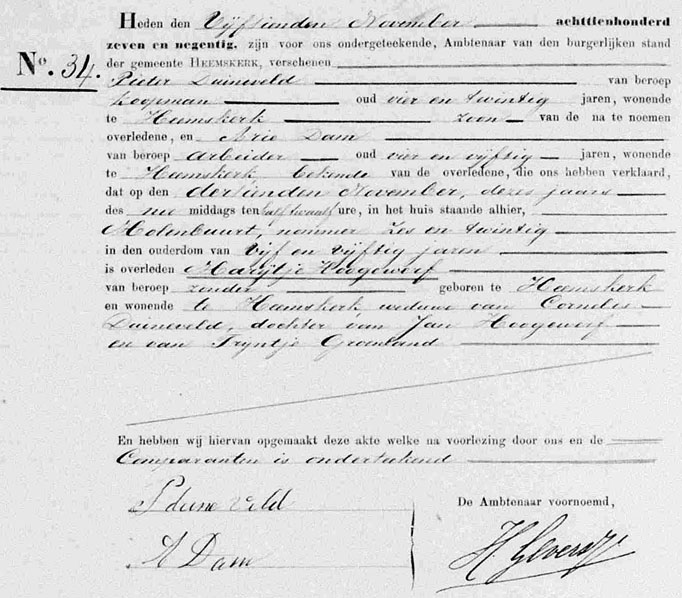 Heden den Vijftienden November achttienhonderd
zeven en negentig, zijn voor ons ondergeteekende, Ambtenaar van den burgerlijken stand
No. 34.
der gemeente HEEMSKERK, verschenen
Pieter Duineveld van beroep
koopman oud vier en twintig jaren, wonende
te Heemskerk zoon van de na te noemen
overledene, en Arie Dam
van beroep arbeider oud vier en vijftig jaren, wonende
te Heemskerk, bekende van de overledene, die ons hebben verklaard,
dat op den dertienden November, dezes jaars
des middags ten half twaalf ure, in het huis staande alhier,
Molenbuurt, nommer zes en twintig
in den ouderdom van Vijf en vijftig jaren
is overleden Marijtje Hoogewerf
van beroep zonder geboren te Heemskerk
en wonende te Heemskerk, weduwe van Cornelis
Duineveld, dochter van Jan Hoogewerf
en van Tryntje Groenland
En hebben wij hiervan opgemaakt deze akte welke na voorlezing door ons en de
Comparanten is ondertekend
P duine veld
De Ambtenaar voornoemd,
A Dam